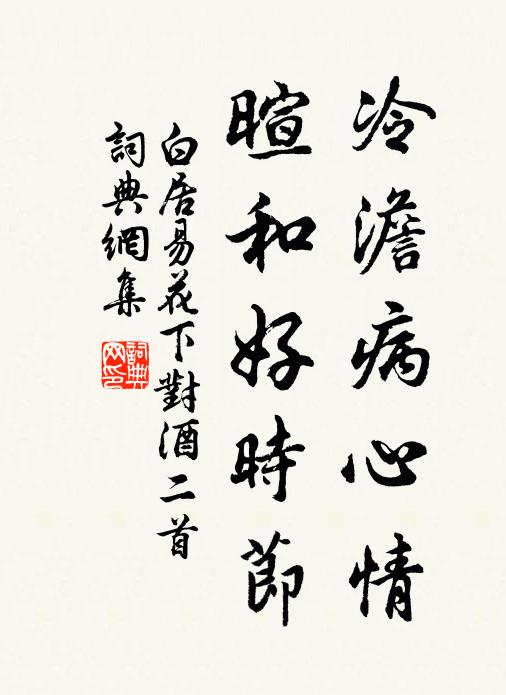 冷澹病心情
暄和好時節
白居易花下對酒二首
詞典網集
詞典網印